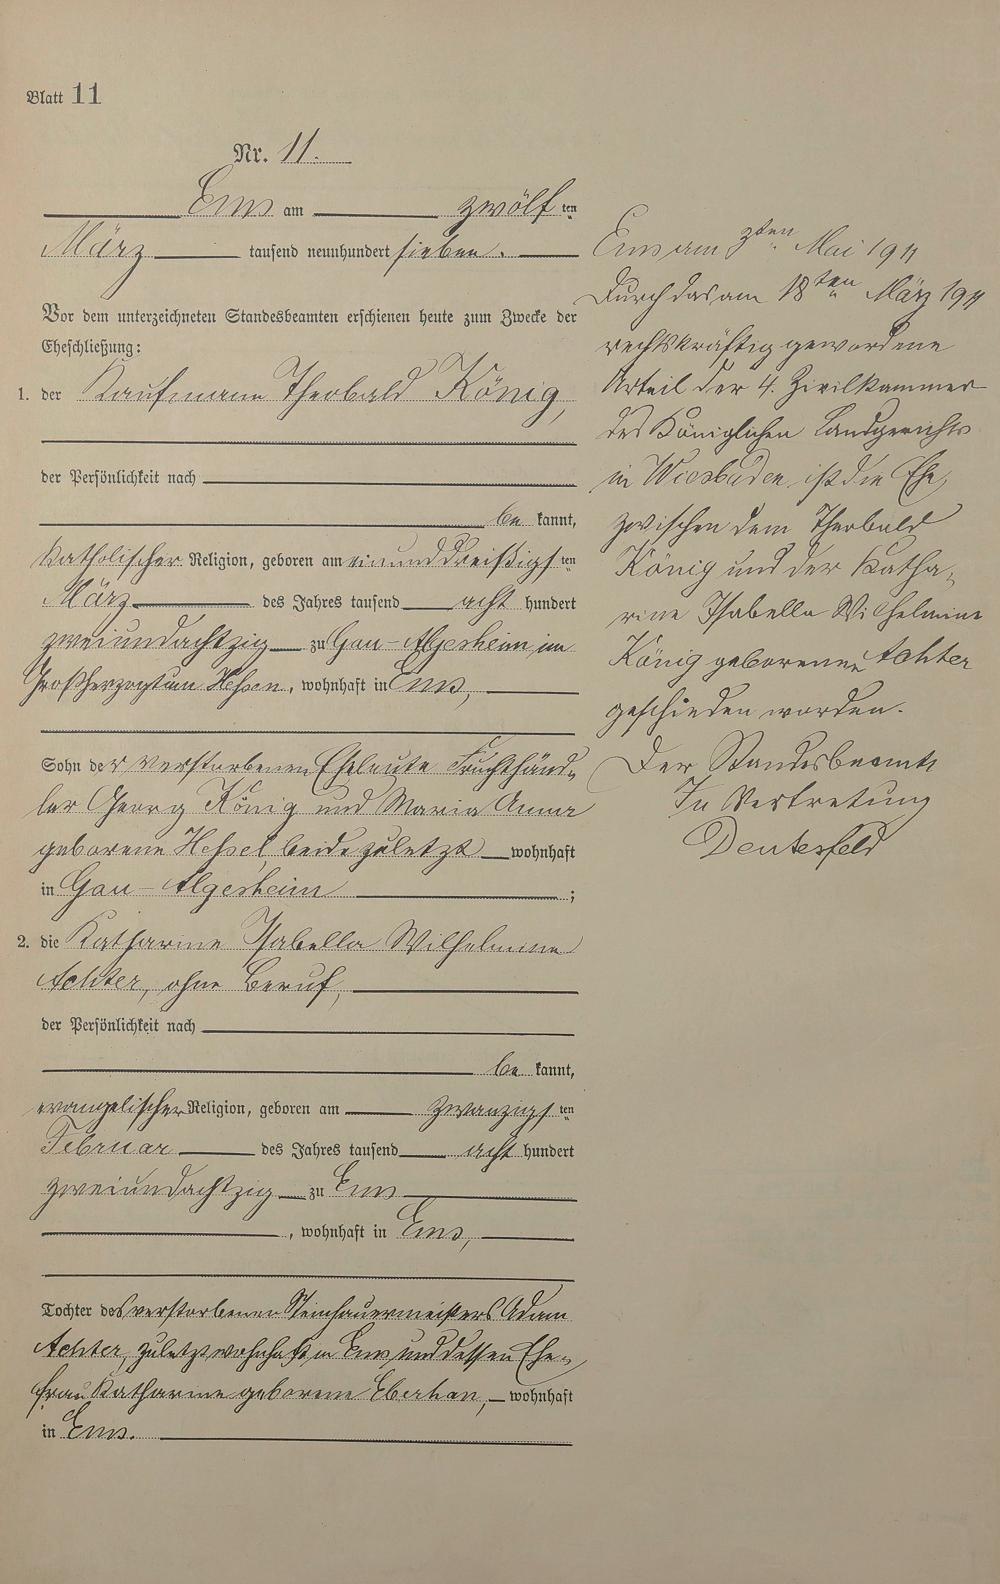 Blatt 11
Nr. 11.
Ems am zwölften
März tausend neunhundert sieben.
Vor dem unterzeichneten Standesbeamten erschienen heute zum Zwecke der
Eheschließung:
1. der Kaufmann Theobald König,
der Persönlichkeit nach
bekannt,
katholischer Religion, geboren am einunddreißigsten
März des Jahres tausend acht hundert
zweiundachtzig zu Gau-Algesheim im
Großherzogtum Hessen, wohnhaft in Ems,
Sohn der verstorbenen Eheleute Fruchthänd-
ler Georg König und Maria Anna
geborene Hessel, beide zuletzt wohnhaft
in Gau-Algesheim ;
2. die Katharine Isabella Wilhelmine
Achter, ohne Beruf,
der Persönlichkeit nach
bekannt,
evangelischer Religion, geboren am zwanzigsten
Februar des Jahres tausend acht hundert
zweiundachtzig zu Ems
, wohnhaft in Ems,
Tochter des verstorbenen Steinhauermeisters Adam
Achter, zuletzt wohnhaft in Ems und dessen Ehe-
frau Katharine geborene, wohnhaft
in Ems.
Ems am ten Mai 1911
Durch das am 18ten März 1911
rechtskräftig gewordene
Urteil der 4. Zivilkammer
des Königlichen Landgerichts
in Wiesbaden ist die Ehe
zwischen dem Theobald
König und der Katha-
rine Isabella Wilhelmine
König geborenen Achter
geschieden worden.
Der Standesbeamte
In Vertretung